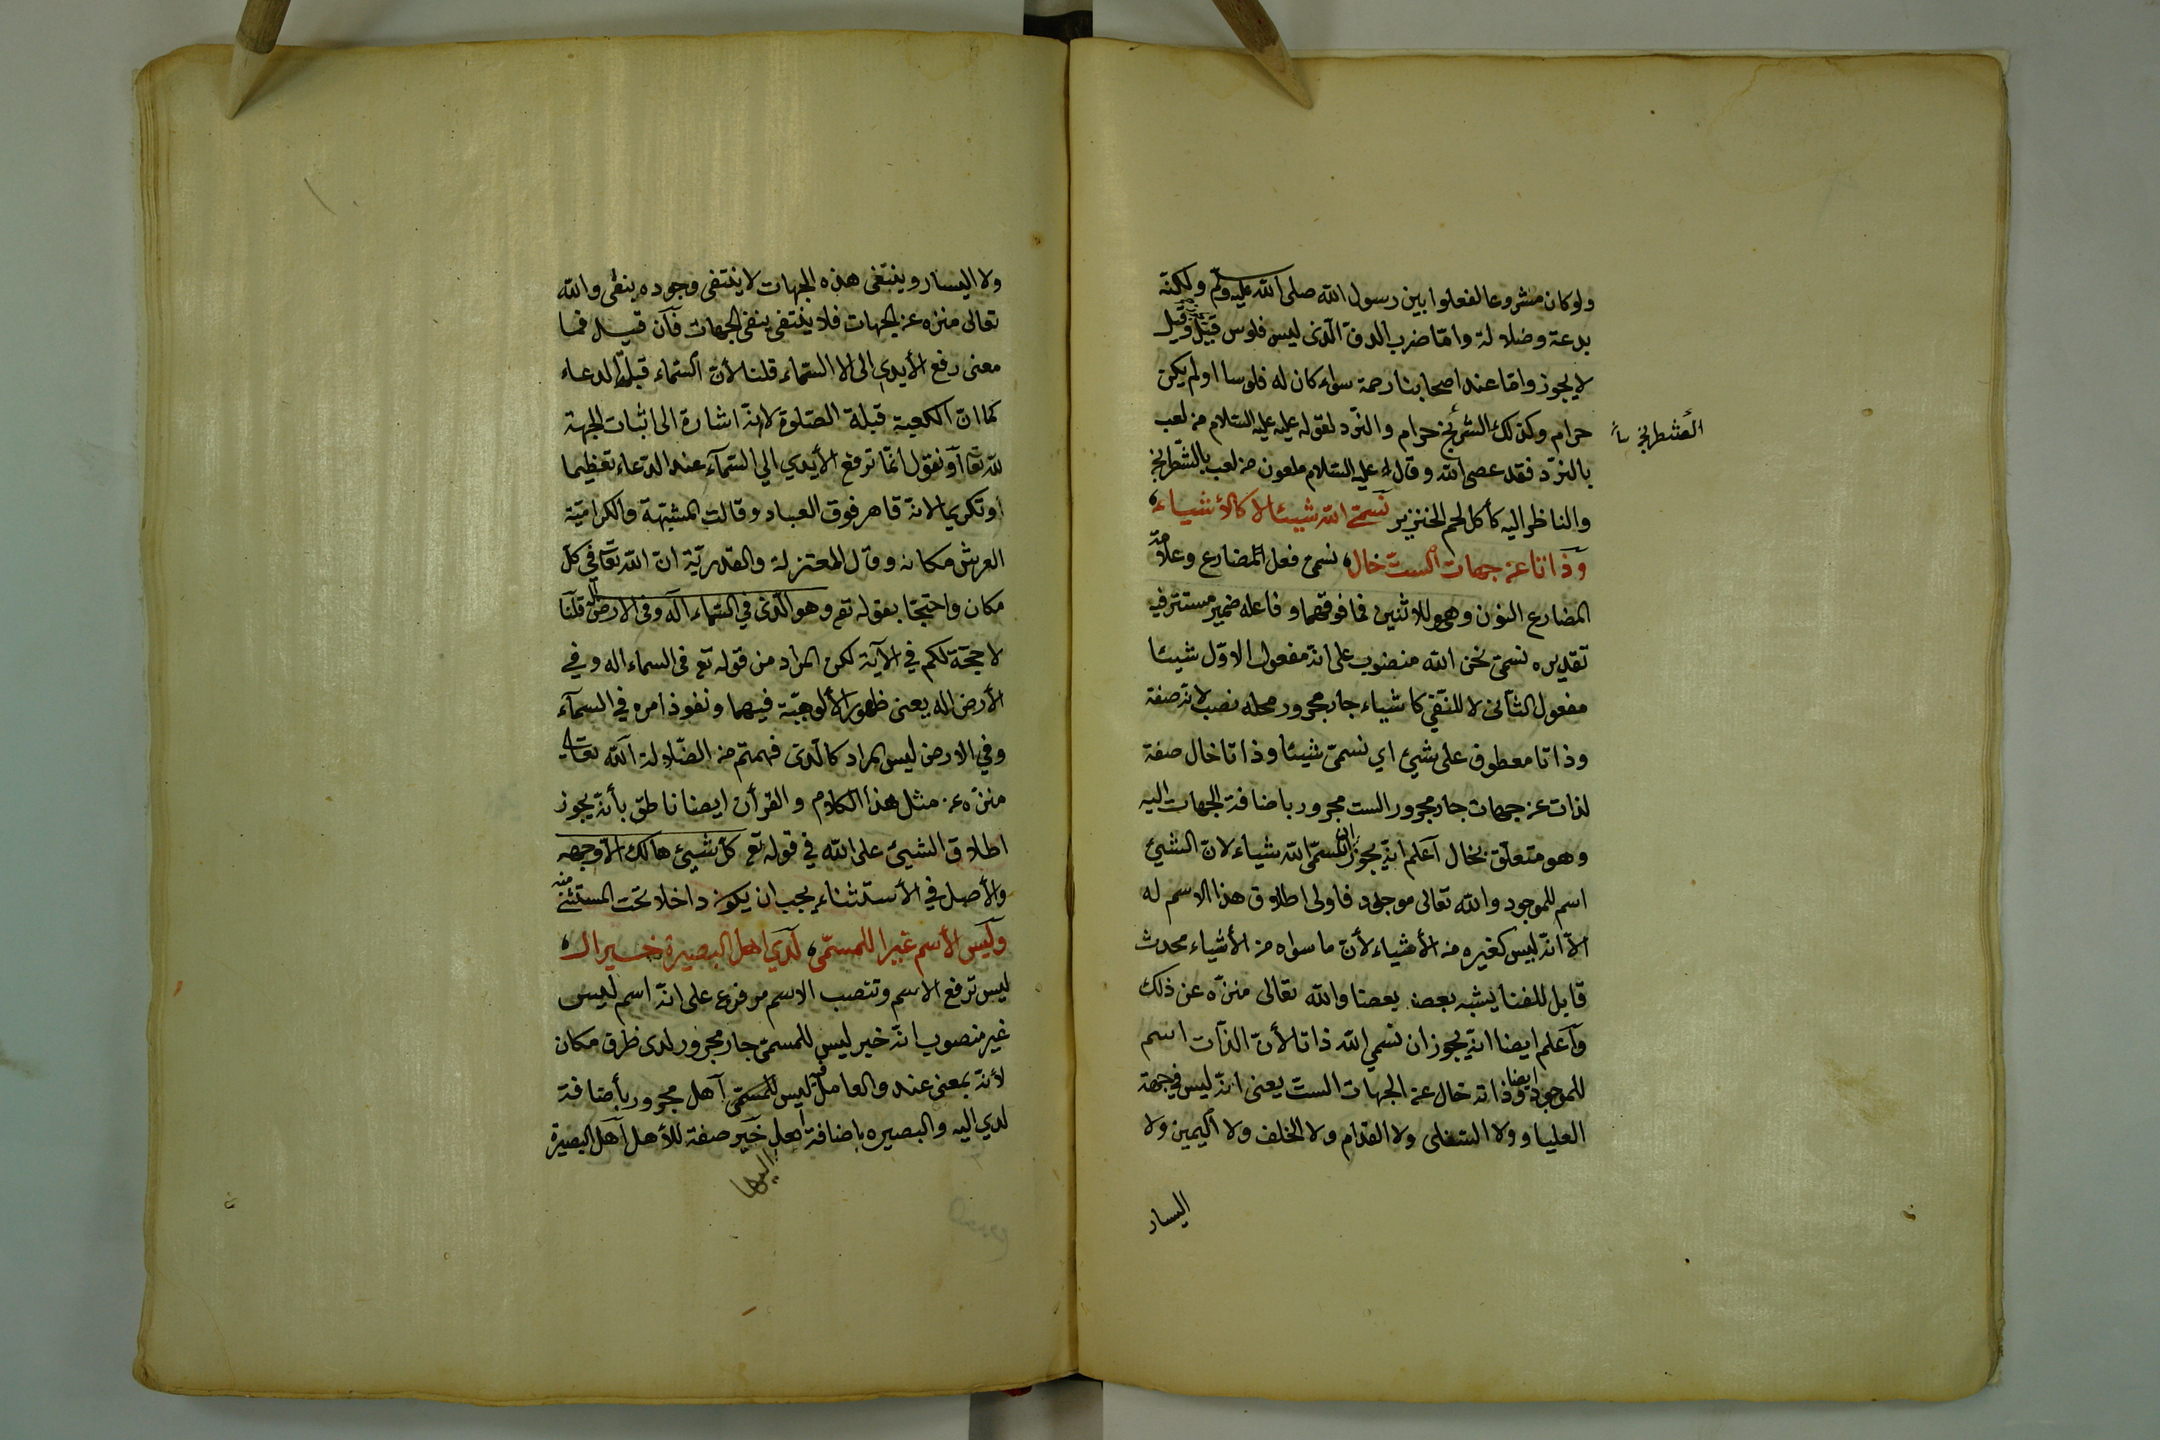 ولو كان مشروعا لفعلوا بين رسول الله صلى الله عليه وسلم ولكنه
بدعة وضلالة واما ضرب الدف الذى ليس فلوس قيل وقيل
لا يجوز واما عند اصحابنا رحمة سواء كان له فلوسا او لم يكن
حرام وكذلك الشرنج حرام والنرد لقوله عليه عليه السلام من لعب
الشطرنج
بالنرد فقد عصى الله وقال عليه السلام ملعون من لعب بالشطرنج
والناظر اليه كأكل لحم الخنزير نسمى الله شيئا لا كالأشياء
وذاتا عن جهات الست خال نسمى فعل المضارع وعلامة
المضارع النون وهو للاثنين فما فوقهما وفاعله ضمير مستتر فيه
تقديره نسمى نحن الله منصوب على انه مفعول الاول شيئا
مفعول الثانى لا للنفي كاشياء جار مجرور محله نصب لانه صفة
وذاتا معطوف على شيئ اي نسمى شيئا وذاتا خال صفة
لذات عن جهات جار مجرور الست مجرور باضافة الجهات اليه
وهو متعلق بخال اعلم انه يجوز ان نسمى الله شياء لان الشيئ
اسم للموجود والله تعالى موجود فاولى اطلاق هذا الاسم له
الا انه ليس كغيره من الأشياء لأن ما سواه من الأشياء محدث
قابل للفنا يشبه بعضه بعضا والله تعالى منزه عن ذلك
واعلم ايضا انه يجوز ان نسمي الله ذاتا لأن الذات اسم
للموجود ايضا وذاته خال عن الجهات الست يعنى انه ليس في جهة
العليا و ولا السفلى ولا القدام ولا الخلف ولا اليمين ولا
اليسار
ولا اليسار وينتفى هذه الجهات لا ينتفى وجوده ينفى والله
تعالى منزه عن الجهات فلا ينتفى بنفى الجهات فان قيل فما
معنى رفع الأيدي الى الا السماء قلنا لأن السماء قبلة الدعاء
كما ان الكعبة قبلة الصلوة لانه اشارة الى اثبات الجهة
لله تعا او نقول انما ترفع الأيدي الي السماء عند الدعاء تعظيما
او تكريما لانه قاهر فوق العباد وقالت المشبهة والكرامية
العرش مكانه وقال المعتزلة والقدرية ان الله تعا في كل
مكان واحتجا بقوله تع وهو الذى في السماء اله وفى الارض اله قلنا
لا حجة لكم في الآية لكن المراد من قوله تع فى السماء اله وفي
الأرض اله يعنى ظهور الألوهية فيهما ونفوذ امره في السماء
وفي الارض ليس المراد كالذى فهمتم من الضلالة الله تعالى
منزه عن مثل هذا الكلام والقرأن ايضا ناطق بأنه يجوز
اطلاق الشيئ على الله في قوله تع كل شيئ هالك الا وجهه
والأصل في الأستثناء يجب ان يكون داخلا تحت المستثنى منه
وليس الأسم غيرا للمسمى لدي اهل البصيرة خير ال
ليس ترفع الاسم وتنصب الاسم مرفوع على انه اسم ليس
غير منصوب انه خبر ليس للمسمى جار مجرور لدى ظرف مكان
لأنه بمعنى عند والعامل فيه ليس للمسمى اهل مجرور بأضافة
لدي اليه والبصيره باضافة اهل خير صفة للأهل اهل البصيرة
اليها